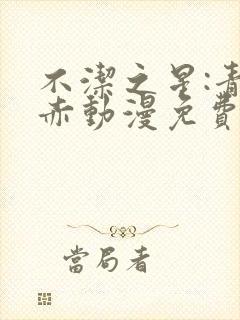 不潔之星:青
赤動漫免費
當局者